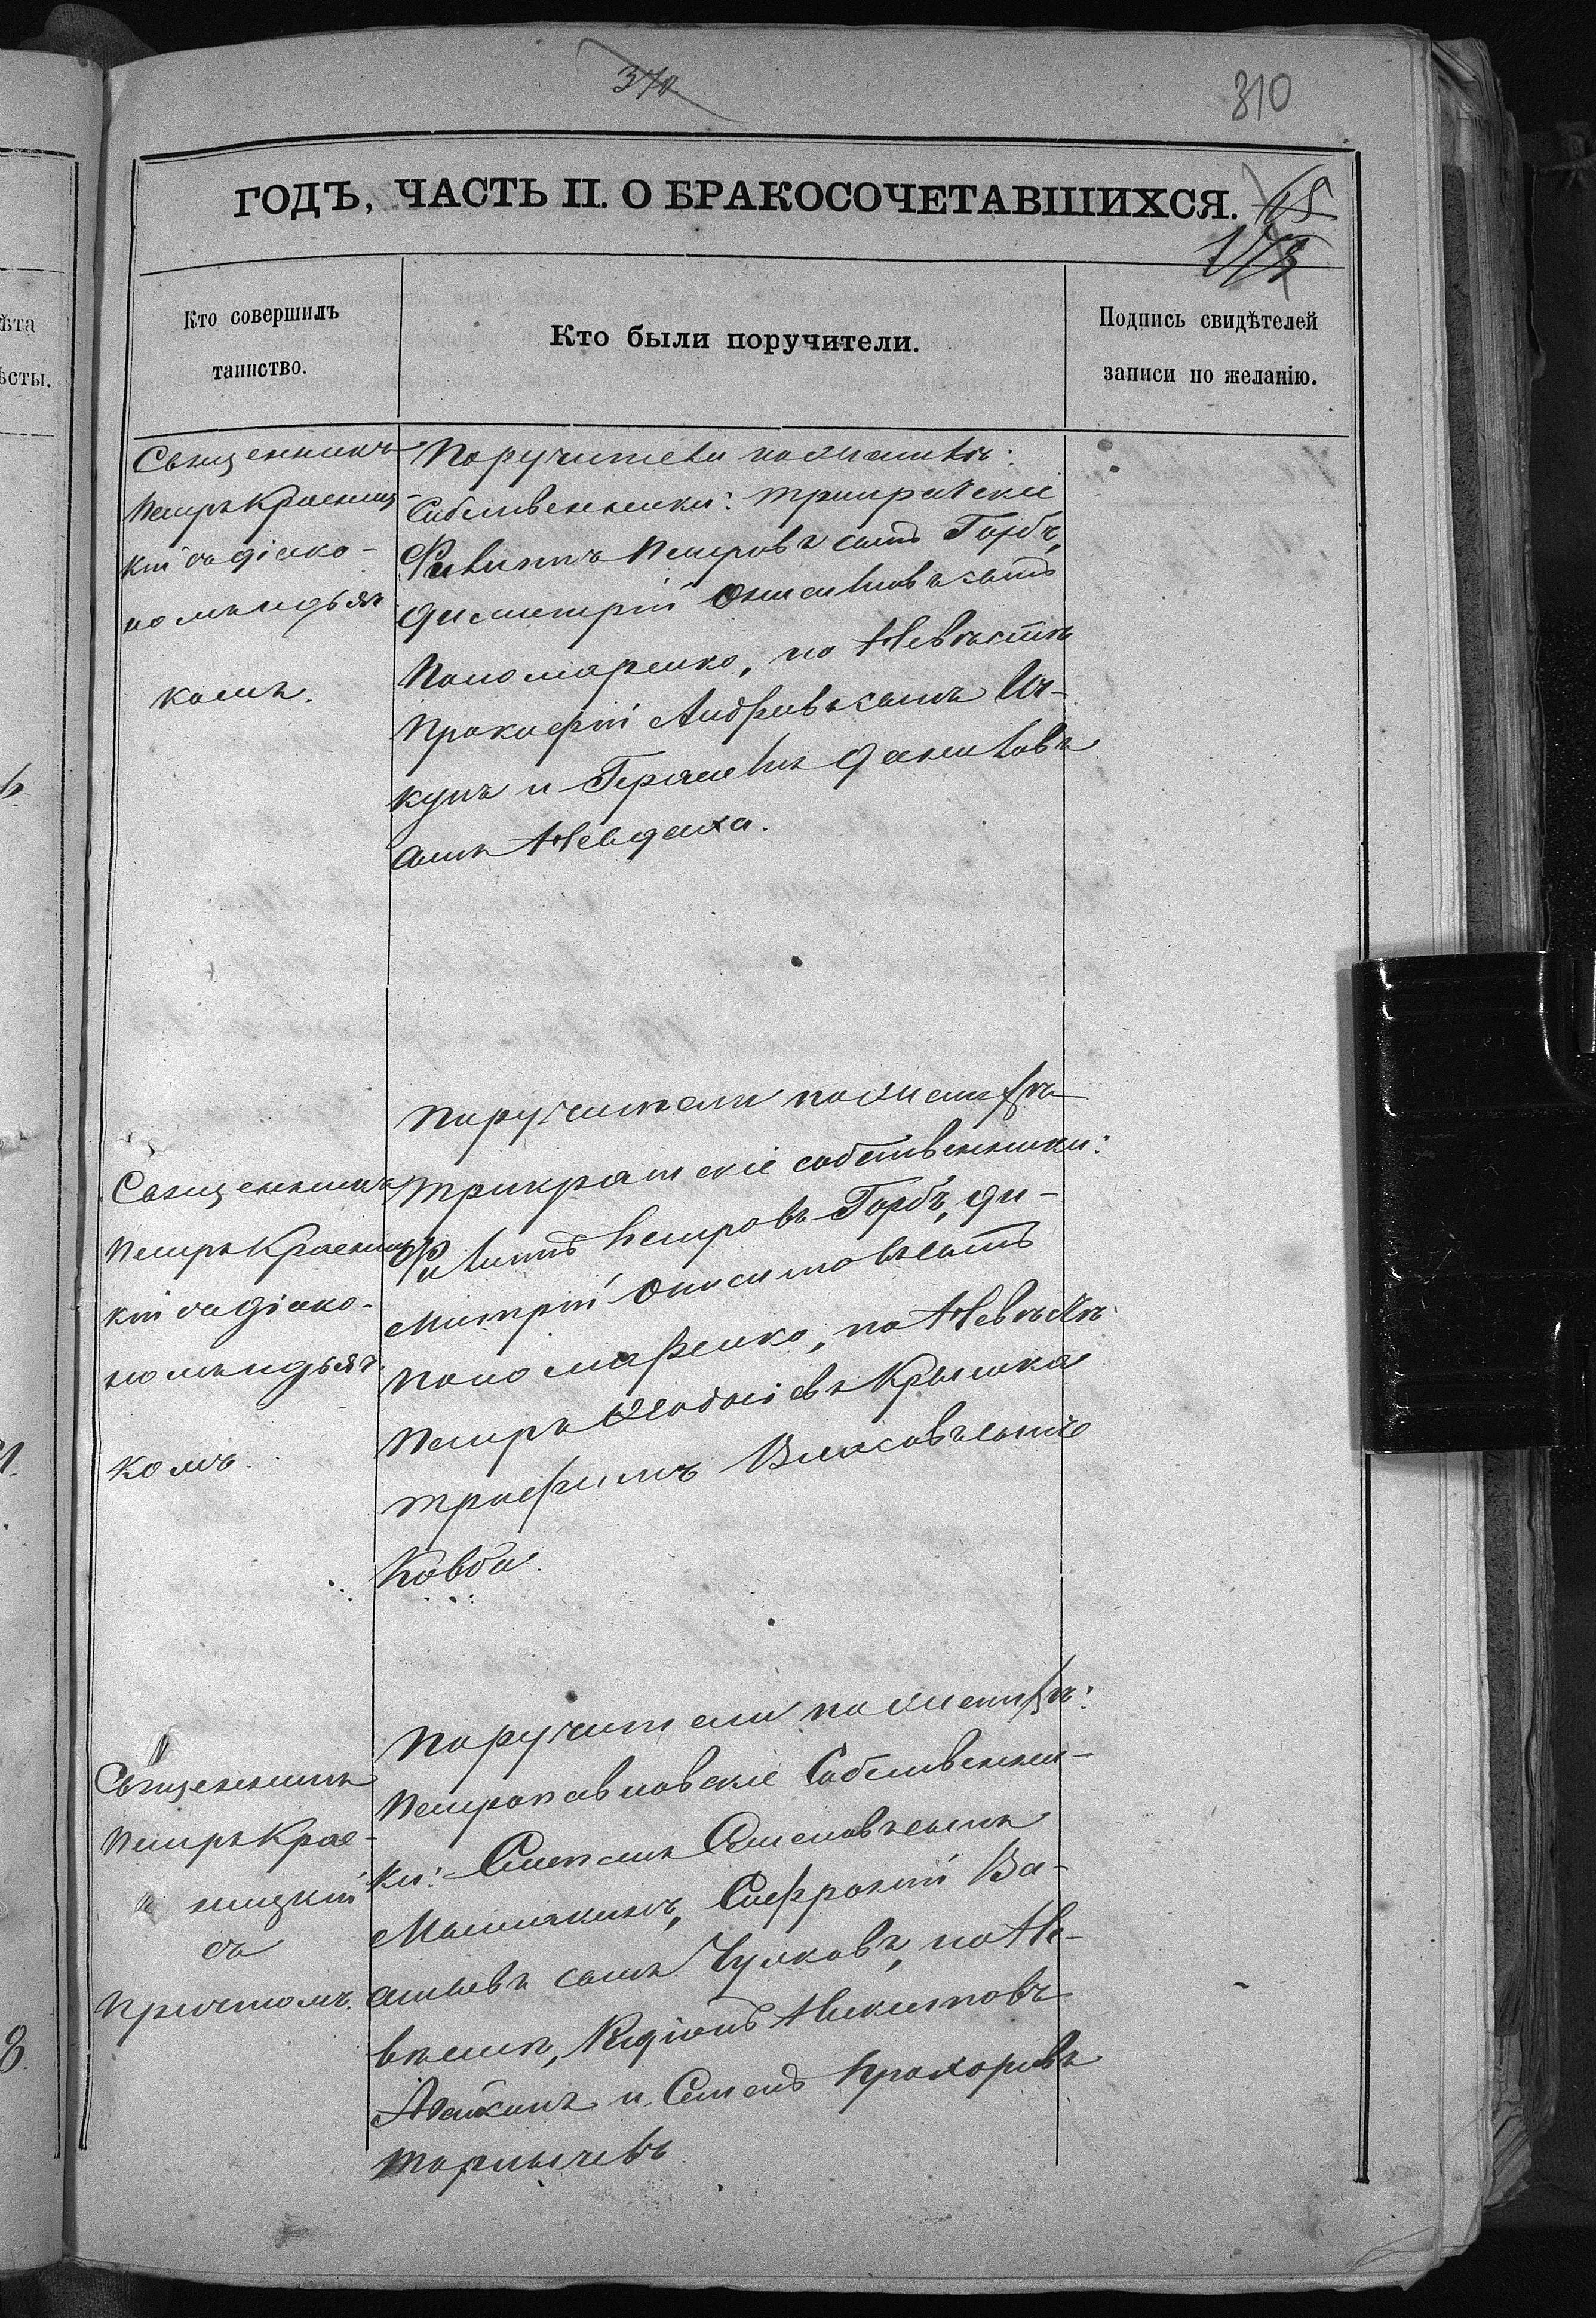 370
310
ГОДЪ, ЧАСТЬ II. О БРАКОСОЧЕТАВШИХСЯ.
Кто совершилъ
таинство.
Кто были поручители.
Подпись свидѣтелей
записи по желанію.
Священникъ
Петръ Красниц-
кій съ діако-
номъ и дьяч
комъ.
Поручители по женихѣ:
Собственники: трикратскіе
Филиппъ Петровъ сынъ Горбъ,
Димитрій Онисимовъ сынъ
Пономаренко, по Невѣстѣ
Прокофій Андреевъ сынъ
купъ и Герасимъ Даниловъ
сынъ Невдаха.
Священникъ
Петръ Красниц
кій съ діако-
номъ и дьяч
комъ.
Поручители по женихѣ
трикратскіе собственники:
Филиппъ Петровъ Горбъ, Ди-
митрій Онисимовъ сынъ
Пономаренко, по Невѣстѣ
Петръ Крышка
трофимъ Власовъ сынъ
Ковба.
Священникъ
Петръ Крас-
ницкій
съ
причтомъ.
Поручители по женихѣ:
Петропавловскіе Собственни-
ки: Степанъ Семеновъ сынъ
Сафроній Ва-
сильевъ сынъ Чулковъ, по Не-
вѣстѣ, Родіонъ Никитовъ
и Семенъ Прохоровъ
ѣта
ѣсты.